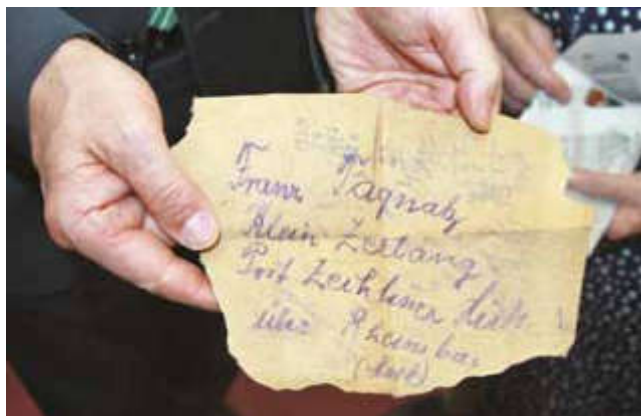 Franz
Klein Zerlang
Post Zechliner Hütt
über Rheinsber
(Mark)